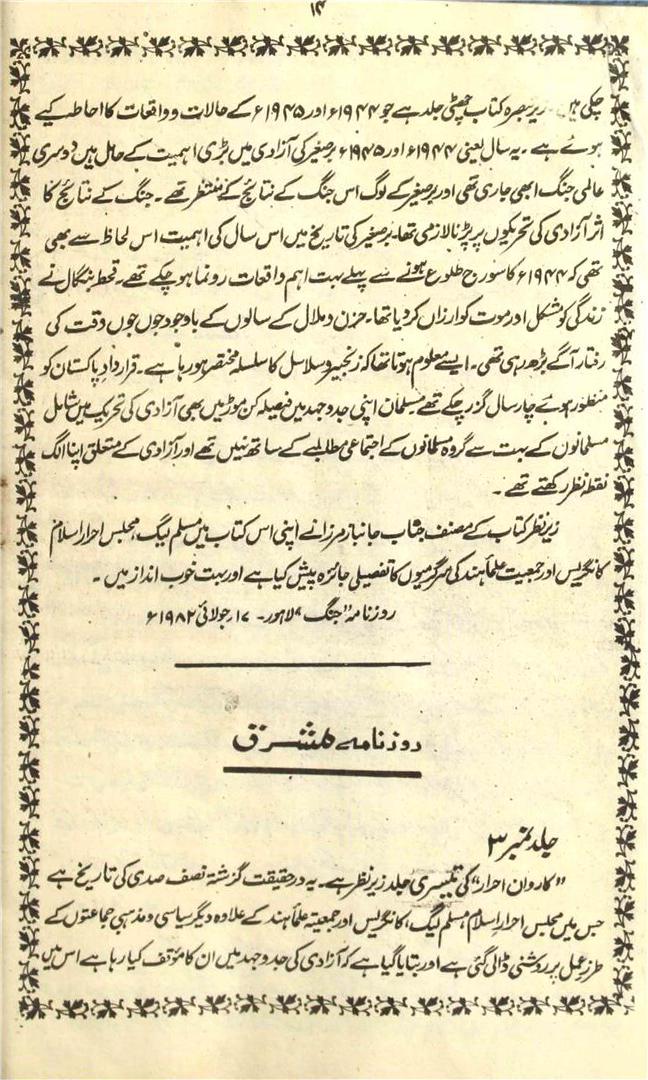 ۱۴
چکی ہیں۔ زیر تبصرہ کتاب چھٹی جلد ہے جو ۱۹۴۴ء اور ۱۹۴۵ء کے حالات و واقعات کا احاطہ کیے
ہوئے ہے۔ یہ سال یعنی ۱۹۴۴ء اور ۱۹۴۵ء برصغیر کی آزادی میں بڑی اہمیت کے حامل ہیں دوسری
عالمی جنگ ابھی جاری تھی اور برصغیر کے لوگ اس جنگ کے نتائج کے منتظر تھے۔ جنگ کے نتائج کا
اثر آزادی کی تحریکوں پر پڑنا لازمی تھا۔ برصغیر کی تاریخ میں اس سال کی اہمیت اس لحاظ سے بھی
تھی کہ ۱۹۴۴ء کا سورج طلوع ہونے سے پہلے بہت اہم واقعات رونما ہو چکے تھے۔ قحط بنگال نے
زندگی کو مشکل اور موت کو ارزاں کر دیا تھا۔ حزن و ملال کے سالوں کے باوجود جوں جوں وقت کی
رفتار آگے بڑھ رہی تھی۔ ایسے معلوم ہوتا تھا کہ زنجیر و سلاسل کا سلسلہ مختصر ہو رہا ہے۔ قرارداد پاکستان کو
منظور ہوئے چار سال گزر چکے تھے مسلمان اپنی جدوجہد میں فیصلہ کن موڑ میں بھی آزادی کی تحریک میں شامل
مسلمانوں کے بہت سے گروہ مسلمانوں کے اجتماعی مطالبے کے ساتھ نہیں تھے اور آزادی کے متعلق اپنا الگ
نقطہ نظر رکھتے تھے۔
زیر نظر کتاب کے مصنف جناب جانباز مرزا نے اپنی اس کتاب میں مسلم لیگ، مجلس احرار اسلام
کانگریس اور جمعیت علمأ ہند کی سرگرمیوں کا تفصیلی جائزہ پیش کیا ہے اور بہت خوب انداز میں۔
روزنامہ "جنگ" لاہور۔ ۱۷ر جولائی ۱۹۸۲ء
روزنامہ مشرق
جلد نمبر ۳
"کاروان احرار" کی تیسری جلد زیر نظر ہے۔ یہ درحقیقت گزشتہ نصف صدی کی تاریخ ہے
جس میں مجلس احرار اسلام، مسلم لیگ، کانگریس اور جمعیتہ علمأ ہند کے علاوہ دیگر سیاسی و مذہبی جماعتوں کے
طرز عمل پر روشنی ڈالی گئی ہے اور بتایا گیا ہے کہ آزادی کی جدوجہد میں ان کا مؤقف کیا رہا ہے اس میں